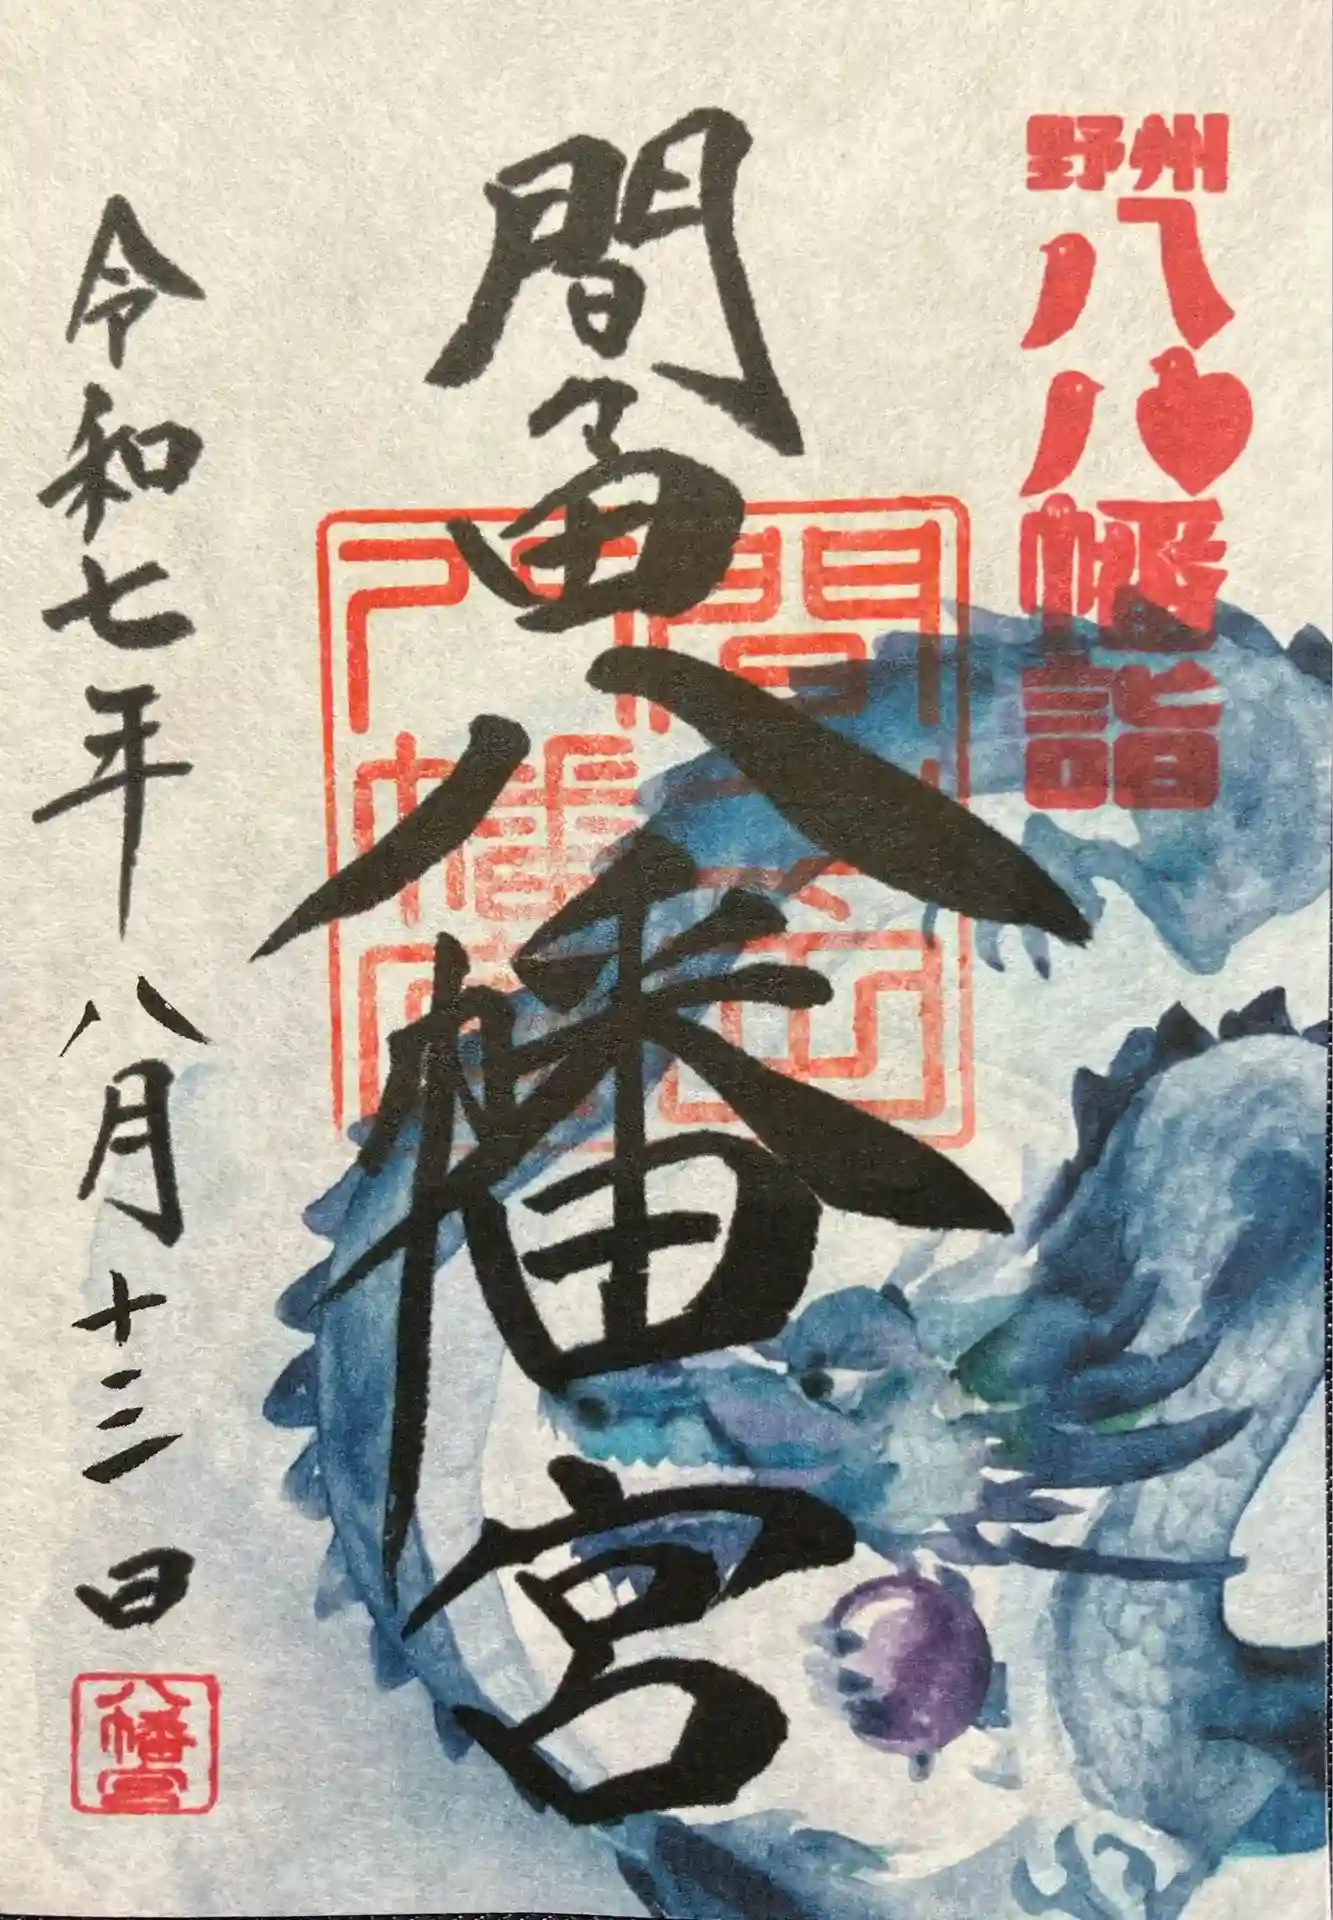 野州
八八幡詣
間々田八幡宮
間々田
八幡宮
令和七年八月十三日
八幡宮